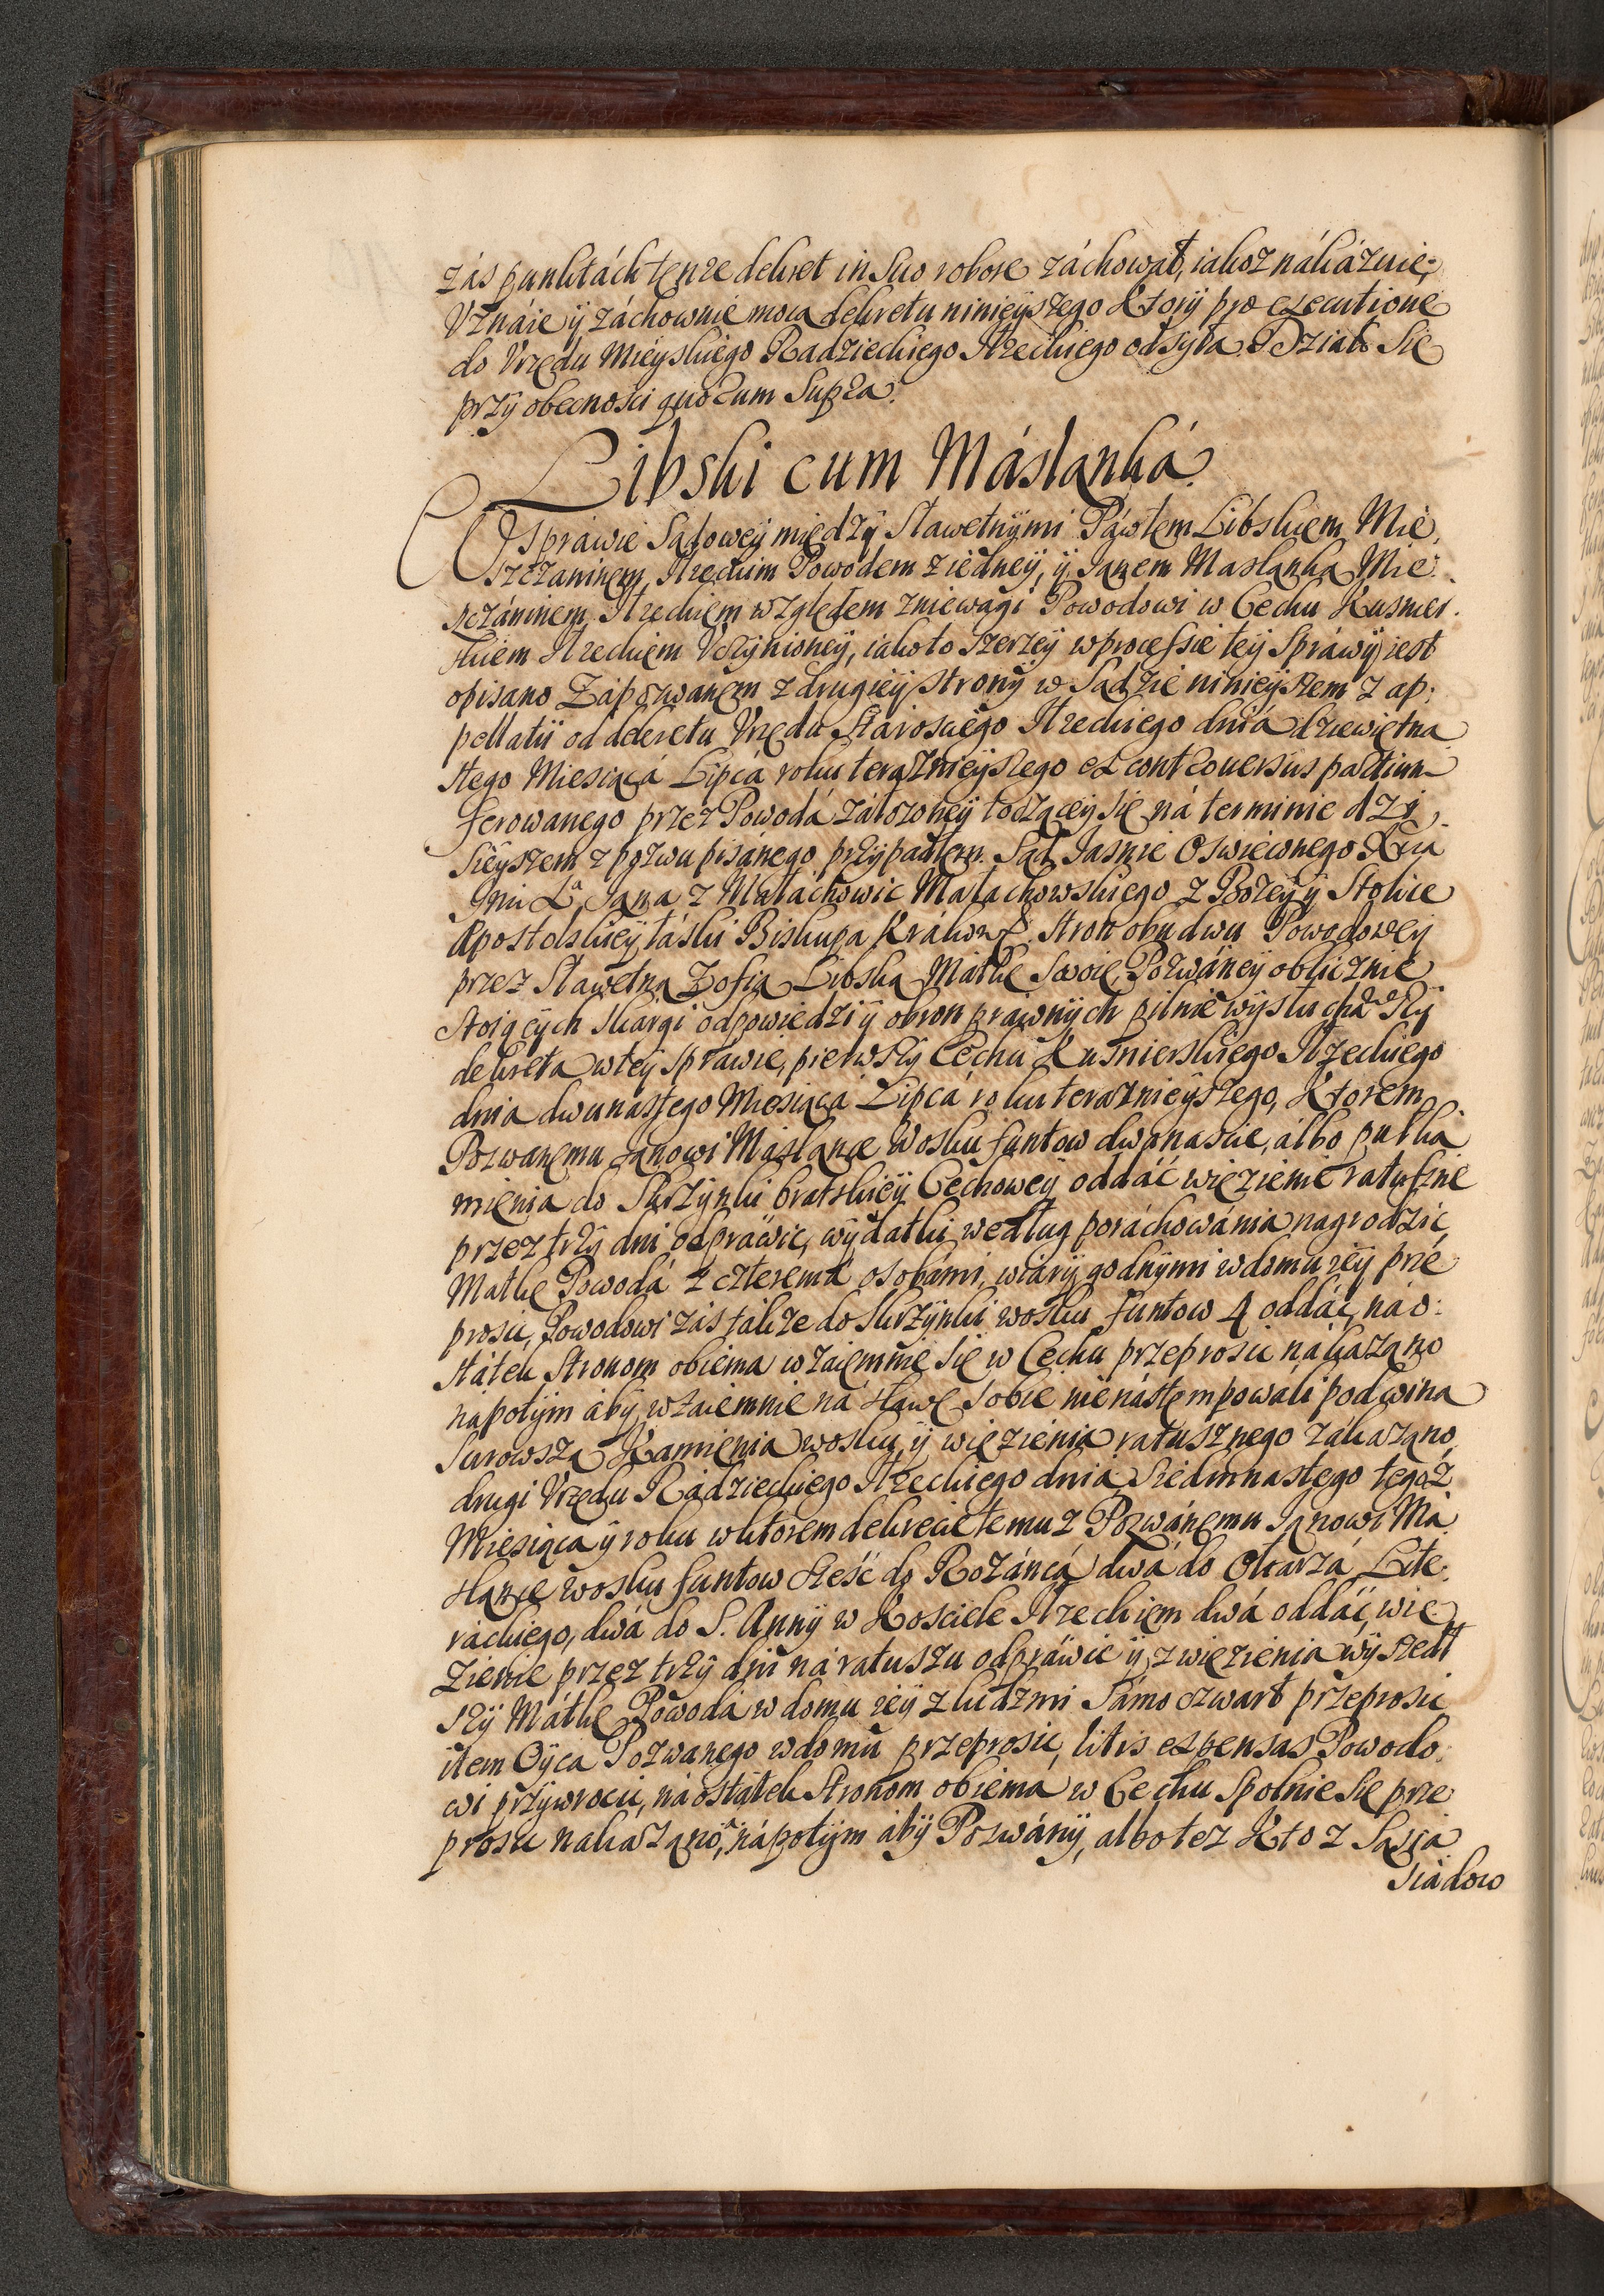 zás punktách tenze dekret in suo robore záchował, iakoz nákázuie,
Uznáie ÿ záchownie mocą dekretu ninieÿszego Ktorÿ pro executione
do Vrzędu Mieÿskiego Radzieckiego Iłzeckiego odsyła. Działo Się
przÿ obecnosci quorum Supra.
Libski cum Máslanká.
W Sprawie Sądoweÿ międzÿ Sławetnÿmi Páwłem Libskiem Mie,
szczaninem, Iłzeckim Powodem z iedneÿ, ÿ Janem Maslanką Mie:
szczáninem, Iłzeckiem względem zniewagi Powodowi w Cechu Kusnier.
skiem Iłzeckiem Uczÿnioneÿ, iako to szerzeÿ w processie teÿ Spráwÿ iest
opisano Zapozwanem z drugieÿ stronÿ w Sądzie ninieÿszem z ap:
pellatiÿ od dekretu Vrzędu Stárosciego Iłzeckiego dniá dziewiętna
stego Miesiącá Lipca roku teraznieÿszego ex controuersiis partium
ferowanego przez Powodá záłozoneÿ toczącéÿ się ná terminie dzi
sieÿszem z pozwu pisánego przÿpadłem. Sąd Jasnie Oswieconego Xcia
Jmci Xa Jana z Małáchowic Małachowskiego z Bozeÿ ÿ Stolice
Apostolskieÿ łáski Biskupa Krákowso. Stron obudwu Powodoweÿ
przez Sławetną Zofią Libską Mátkę Swoię, Pozwáneÿ oblicznie
stoiącÿch skargi odpowiedzi ÿ obron prawnÿch pilnie wÿsłuchawszÿ
dekreta w teÿ sprawie, pierwszÿ Cechu Kusnierskiego Iłzeckiego
dnia dwunastego Miesiącá Lipcá roku teraznieÿszego, Ktorem
Pozwanemu Janowi Máslance Wosku funtow dwanascie, álbo puł ka
mienia do Skrzÿnki brátskieÿ Cechoweÿ oddáć więzienie ratuszne
przez trzÿ dni odpráwic, wÿdatki według poráchowánia nagrodzić,
Matkę Powodá z czterema osobámi, wiárÿ godnÿmi w domu ieÿ prze
prosic, Powodowi zás tákze do Skrzÿnki wosku funtow 4 oddáć, ná o:
státek Stronom obiema wzaiemnie się w Cechu przeprosic nákazano
nápotÿm ábÿ wzaiemnie ná sławę sobie nie nástempowáli pod winą
surowszą Kamienia wosku ÿ więzienia ratusznego zákazano,
drugi Vrzędu Rádzieckiego Iłzeckiego dniá Siedmnastego tegoz
Miesiąca ÿ roku w ktorem dekrecie temuz Pozwánemu Janowi Má
slance wosku funtow sześć do Rozáncá dwá do Ołtarzá Lite:
rackiego, dwá do S. Annÿ w Kosciele Iłzeckiem dwá oddáć, wię
zienie przez trzÿ dni ná ratuszu odpráwic ÿ z więzienia wÿszedł
szÿ Mátkę Powodá w domu ieÿ z ludzmi Sámoczwart przeprosic
item Oÿca Pozwanego w domu przeprosic, litis expensas Powodo:
wi przÿwrocic, ná ostátek Stronom obiemá w Cechu Spolnie się prze
prosic nakazano, nápotÿm ábÿ Pozwánÿ, albo tez Kto z Sąsia
siádow